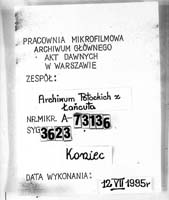 PRACOWNIA MIKROFILMOWA
ARCHIWUM GŁÓWNEGO
AKT DAWNYCH
W WARSZAWIE
ZESPÓŁ:
Archiwum Potockich z
Łańcuta
NR.MIKR. A-73136
SYG. 3623
Koniec
DATA WYKONANIA:
12 VII 1995r